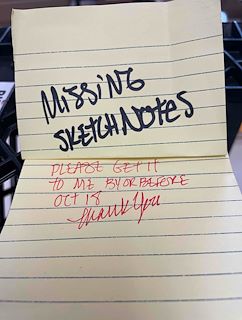 MISSING
SKETCHNOTES
PLEASE GET IT
TO ME BY OR BEFORE
OCT 18
Thank You